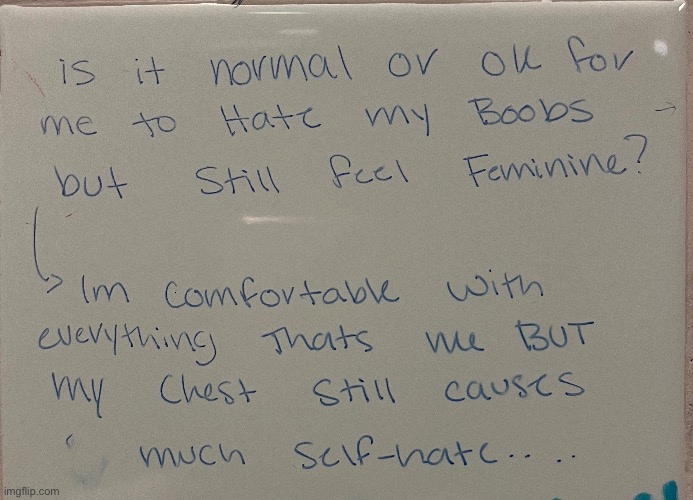 is it normal or ok for
me to Hate my Boobs
but Still feel Feminine?
Im comfortable with
everything Thats me BUT
my Chest Still causes
much Self-hate.. ..
imgflip.com